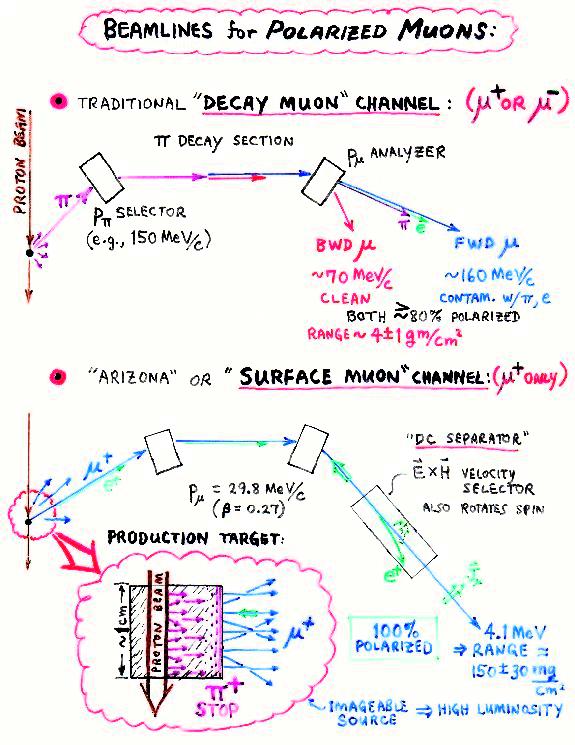 BEAMLINES for POLARIZED MUONS:
TRADITIONAL "DECAY MUON" CHANNEL: (μ⁺ OR μ⁻)
PROTON BEAM
π DECAY SECTION
Pμ ANALYZER
π
Pπ SELECTOR
(e.g., 150 MeV/c)
π e
BWD μ
~70 MeV/c
CLEAN
FWD μ
~160 MeV/c
CONTAM. W/π, e
BOTH ≳80% POLARIZED
RANGE ~ 4±1 gm/cm²
"ARIZONA" OR "SURFACE MUON" CHANNEL: (μ⁺ ONLY)
μ⁺
e⁺
Pμ = 29.8 MeV/c
(β = 0.27)
"DC SEPARATOR"
E⃗ × H⃗ VELOCITY
SELECTOR
ALSO ROTATES SPIN
e⁺
PRODUCTION TARGET:
~1cm
PROTON BEAM
μ⁺
π⁺
STOP
100%
POLARIZED
4.1 MeV
⇒ RANGE ≈
150±30 mg/cm²
IMAGEABLE
SOURCE ⇒ HIGH LUMINOSITY